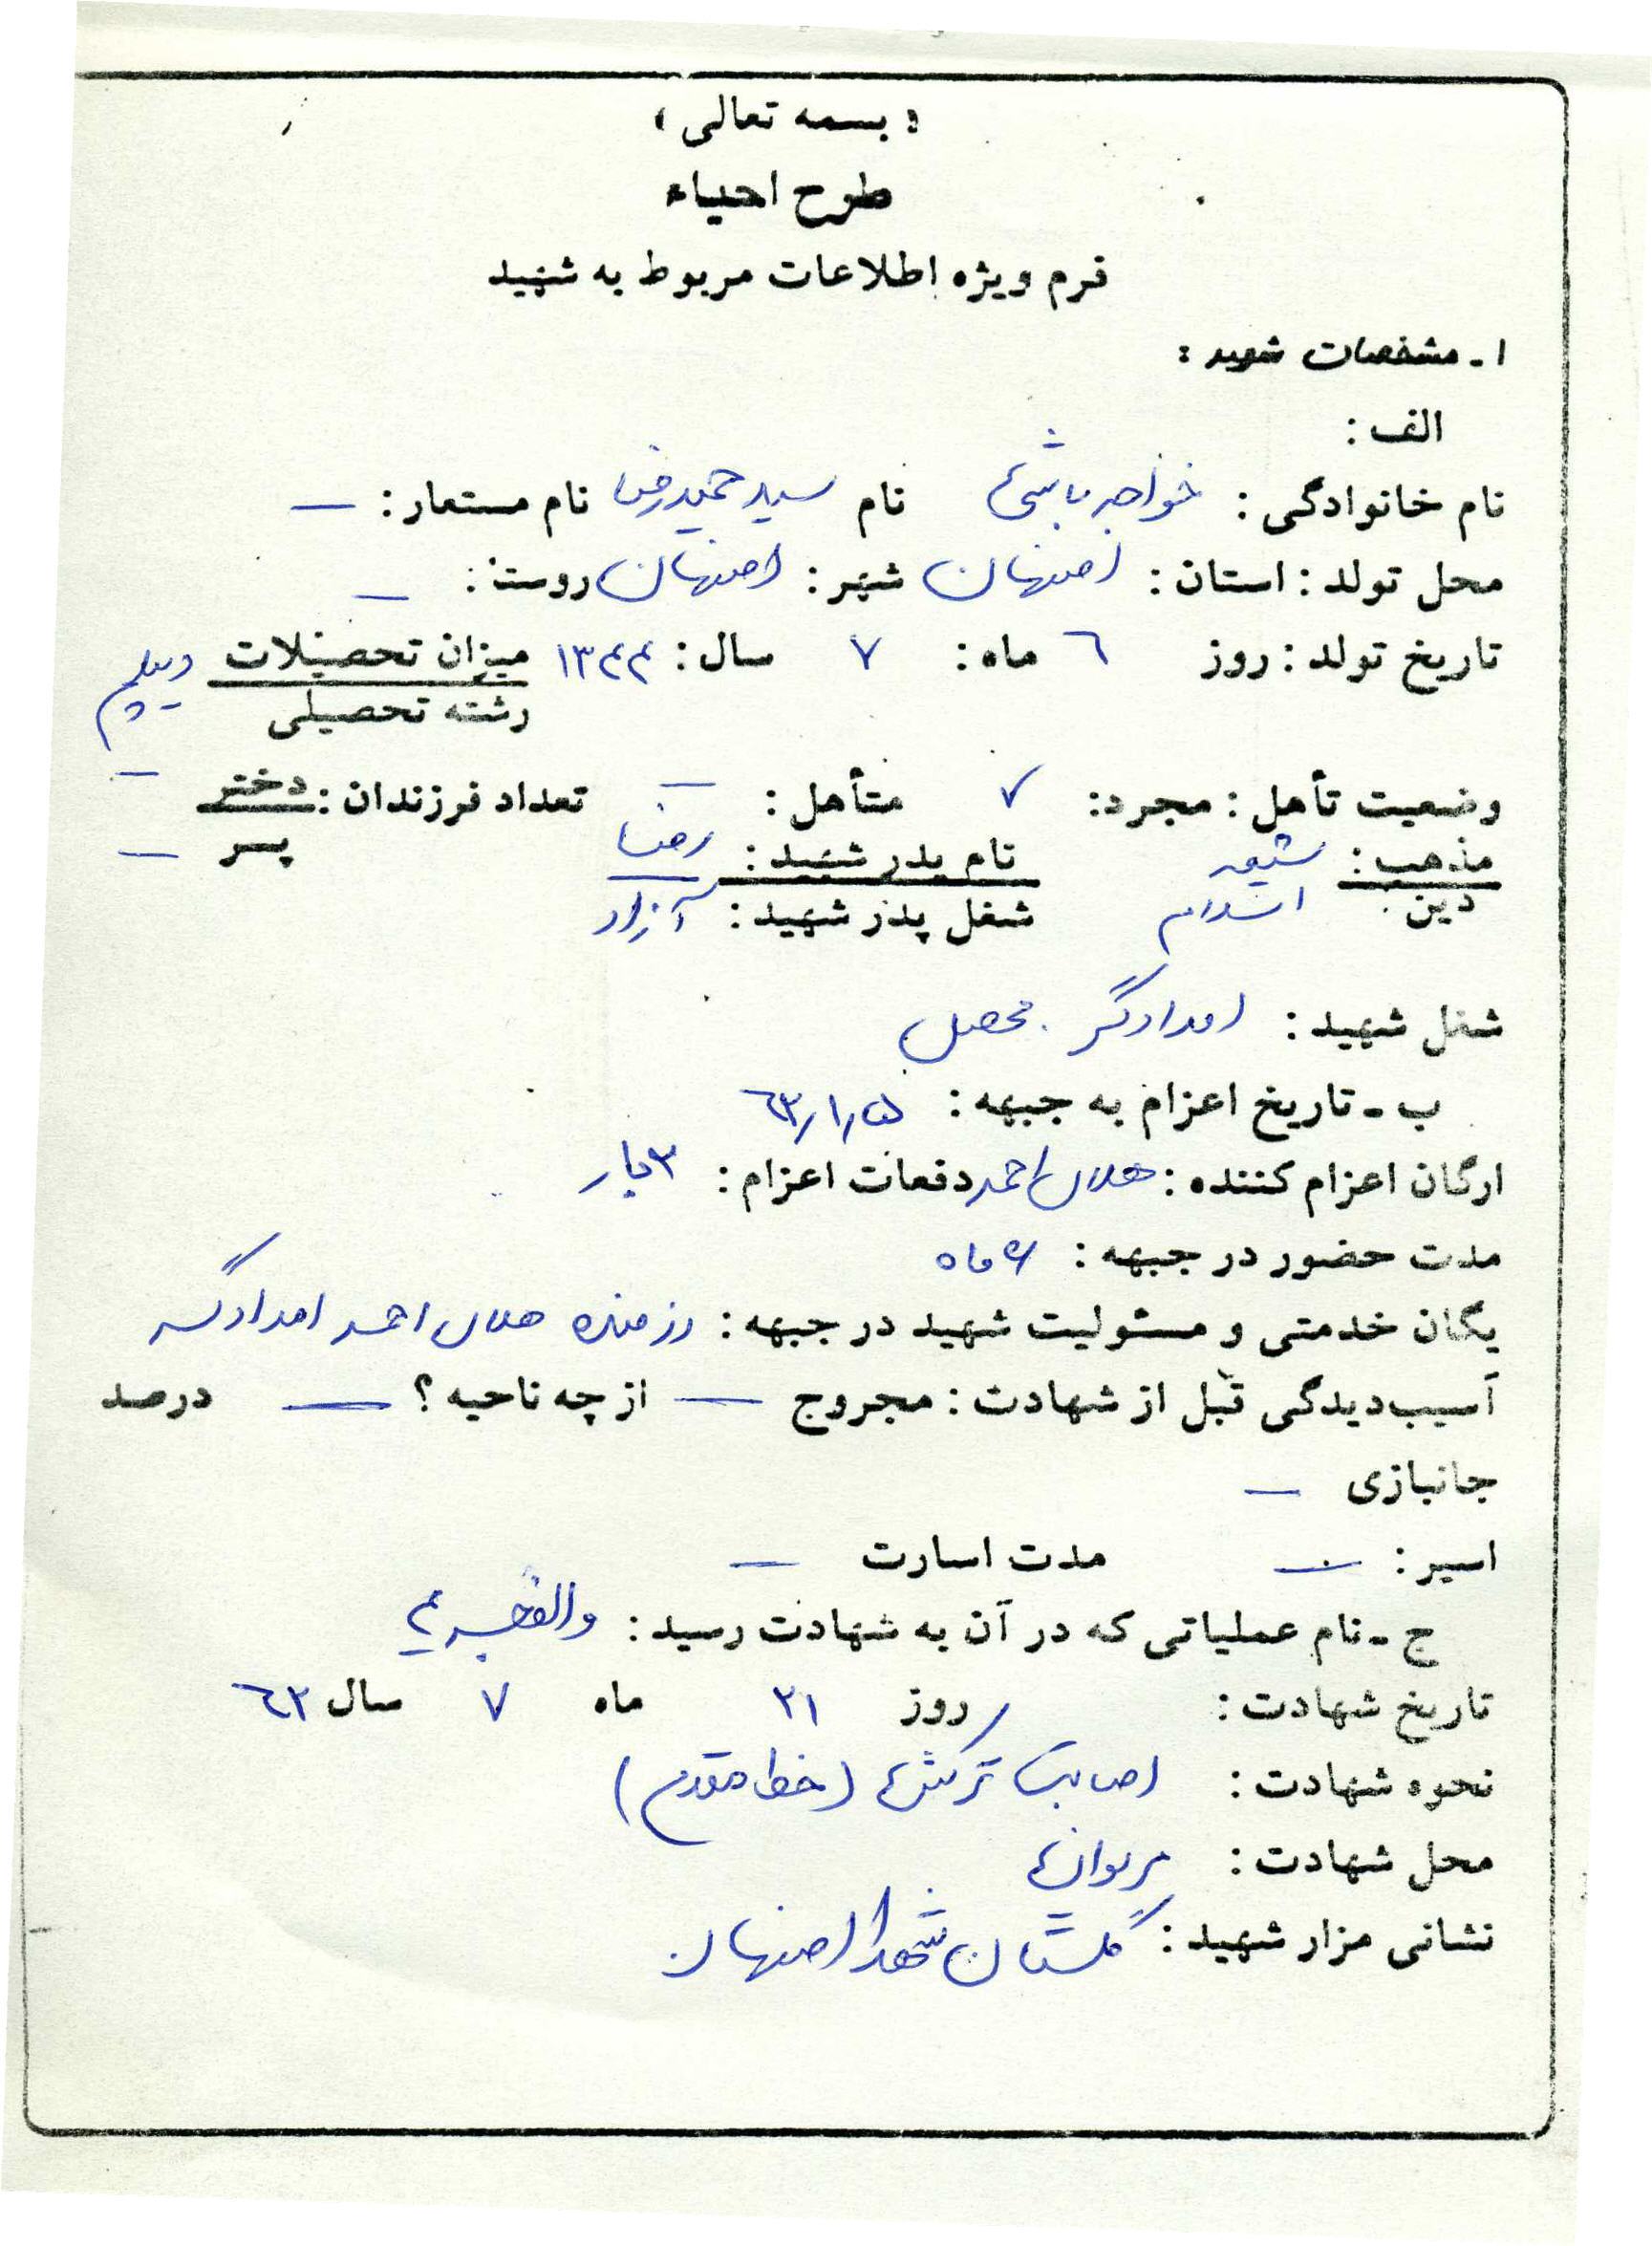 « بسمه تعالی »
طرح احیاء
فرم ویژه اطلاعات مربوط به شهید
۱ ـ مشخصات شهید :
الف :
نام خانوادگی : خواجه باشی نام سید حمیدرضا نام مستعار : —
محل تولد : استان : اصفهان شهر : اصفهان روستا : —
تاریخ تولد : روز ٦ ماه : ۷ سال : ۱۳۴۴ میزان تحصیلات دیپلم
رشته تحصیلی
وضعیت تأهل : مجرد : ✓ متأهل : — تعداد فرزندان : دختر —
پسر —
مذهب : شیعه نام پدر شهید : رضا
دین : اسلام شغل پدر شهید : آزاد
شغل شهید : امدادگر . محصل
ب ـ تاریخ اعزام به جبهه :
ارگان اعزام کننده : هلال احمر دفعات اعزام : ۳ بار
مدت حضور در جبهه : ۶ ماه
یگان خدمتی و مسئولیت شهید در جبهه : رزمنده هلال احمر امدادگر
آسیب‌دیدگی قبل از شهادت : مجروح — از چه ناحیه ؟ — درصد
جانبازی —
اسیر : — مدت اسارت —
ج ـ نام عملیاتی که در آن به شهادت رسید : والفجر ۴
تاریخ شهادت : روز ۲۱ ماه ۷ سال ٦۲
نحوه شهادت : اصابت ترکش (خط مقدم)
محل شهادت : مریوان
نشانی مزار شهید : گلستان شهدا اصفهان